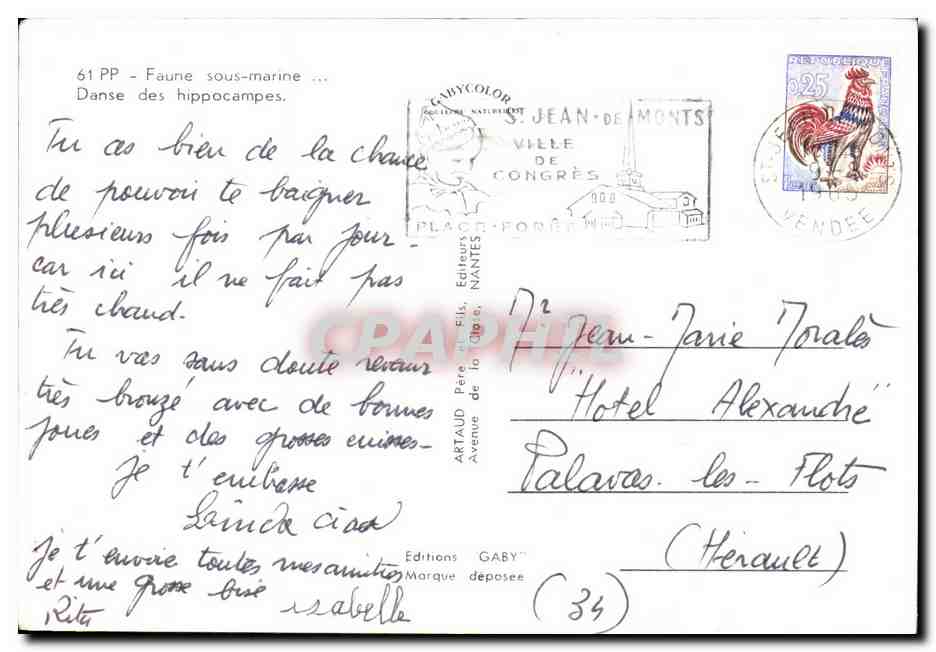 61 PP - Faune sous-marine ...
Danse des hippocampes.
Tu as bien de la chance
de pouvoir te baigner
plusieurs fois par jour -
car ici il ne fait pas
très chaud.
Tu vas sans doute revenir
très bronzé avec de bonnes
joues et des grosses cuisses -
Je t'embrasse
Linda Ciao
Je t'envoie toutes mes amitiés
et une grosse bise
Rita
isabelle
GABYCOLOR
COULEURS NATURELLES
ST JEAN-DE MONTS
VILLE
DE
CONGRÈS
PLAGE-FORÊT
REPUBLIQUE FRANÇAISE
0,25
ST-JEAN
VENDEE
ARTAUD Père et Fils, Editeurs
Avenue de la Close, NANTES
Editions "GABY"
Marque déposée
CPAPHIL
Mr Jean-Marie Moralès
"Hotel Alexandre"
Palavas-les-Flots
(Hérault)
(34)